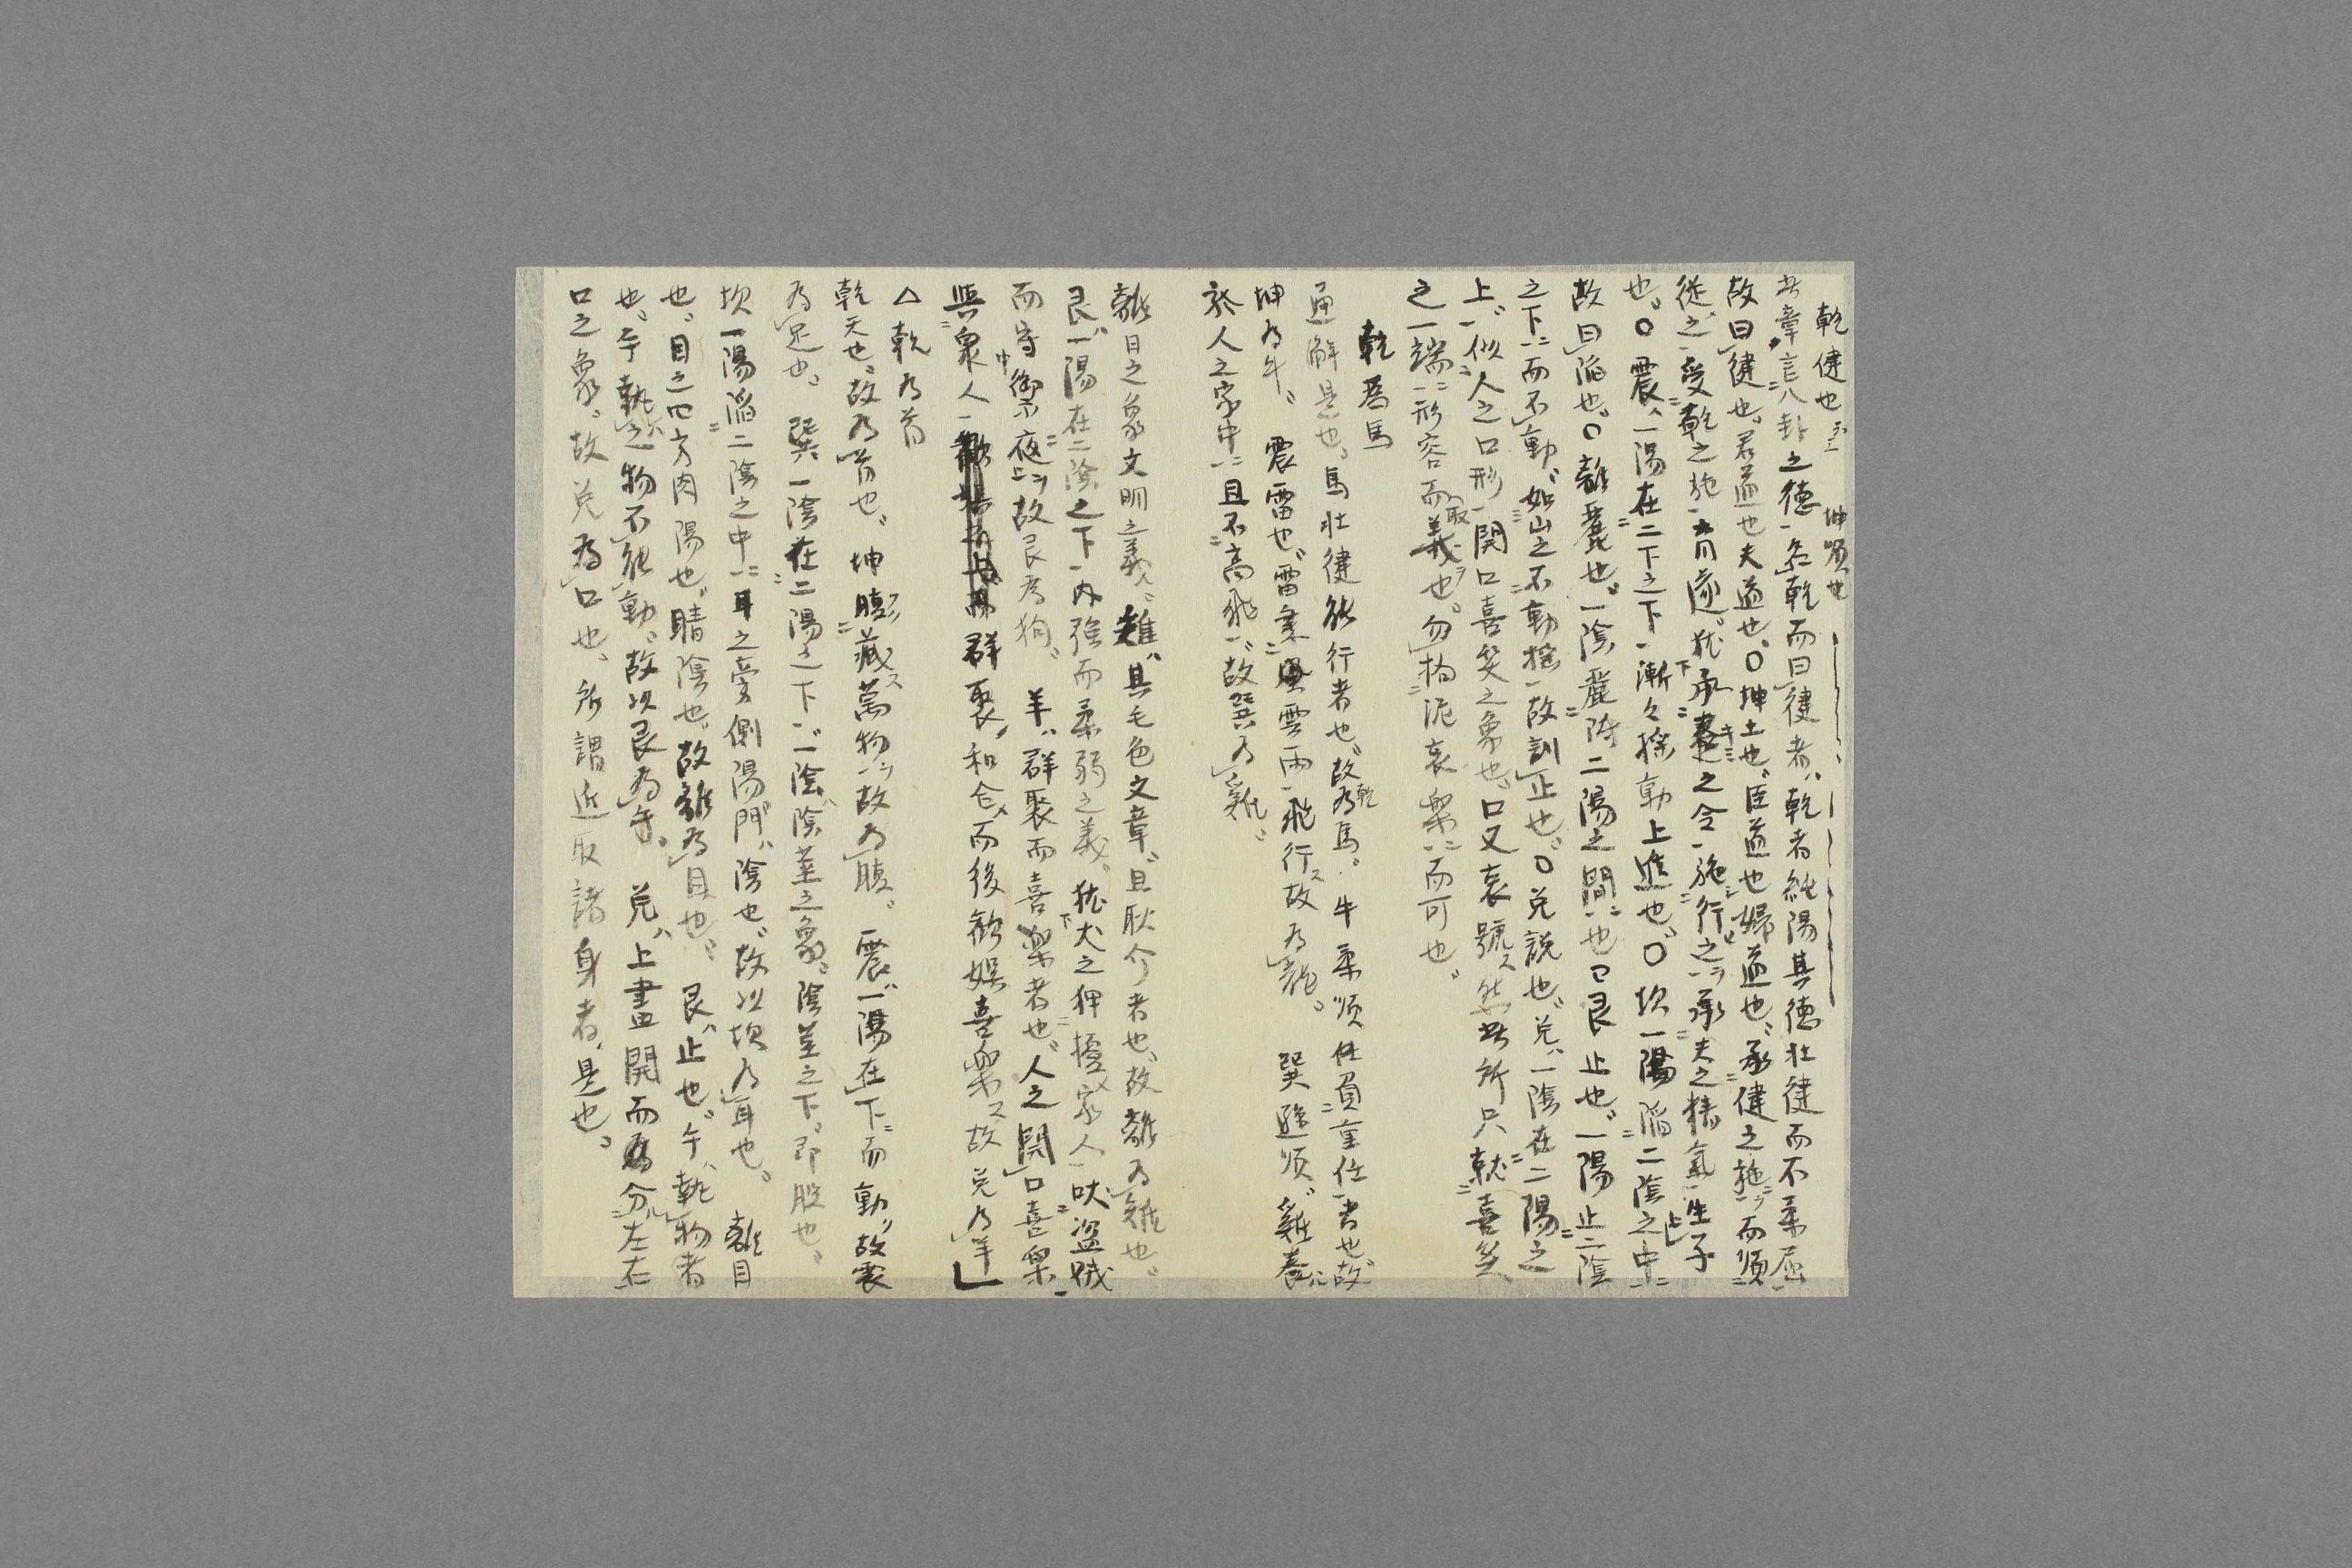 乾健也 坤順也
此章言八卦之德乾而曰健者乾者純陽其德壯健而不柔屈
故曰健也君道也夫道也〇坤土也臣道也婦道也承健之施而順
從之受乾之施遂猶承之令施行之承夫之精氣生子
也〇震一陽在二下之下漸々搖動上進也〇坎一陽陷二陰之中
故曰陷也〇離麗也一陰麗附二陽之間也〇艮止也一陽止二陰
之下而不動如山之不動搖故訓止也〇兌說也兌一陰在二陽之
上似人之口形開口喜笑之象也口又哀號ス然此所只就喜笑
之一端形容而取義也勿拘泥哀樂而可也
乾為馬
通解是也馬壯健能行者也故乾為馬牛柔順任負重任者也故
坤為牛 震雷也雷乗風雲雨飛行ス故為龍 巽遜順雞養
於人之家中且不高飛故巽為雞
離日之象文明之義雉其毛色文章且耿介者也故離為雉也
艮一陽在二陰之下内強而柔弱之義猶犬之狎擾家人吠盜賊
而守禦中夜故艮為狗 羊群聚而喜樂者也人之開口喜樂
與衆人群聚和合而後歡娛喜樂ス故兌為羊
△乾為首
乾天也故為首也 坤腹藏萬物ヲ故為腹 震一陽在下而動故震
為足也 巽一陰在二陽之下一陰陰莖之象陰莖之下即股也
坎一陽陷二陰之中耳之旁側陽門陰也故以坎為耳也 離目
也目之四方肉陽也睛陰也故離為目也 艮止也手執物者
也手執之物不能動故以艮為手 兌上畫開而為分左右
口之象故兌為口也所謂近取諸身者是也